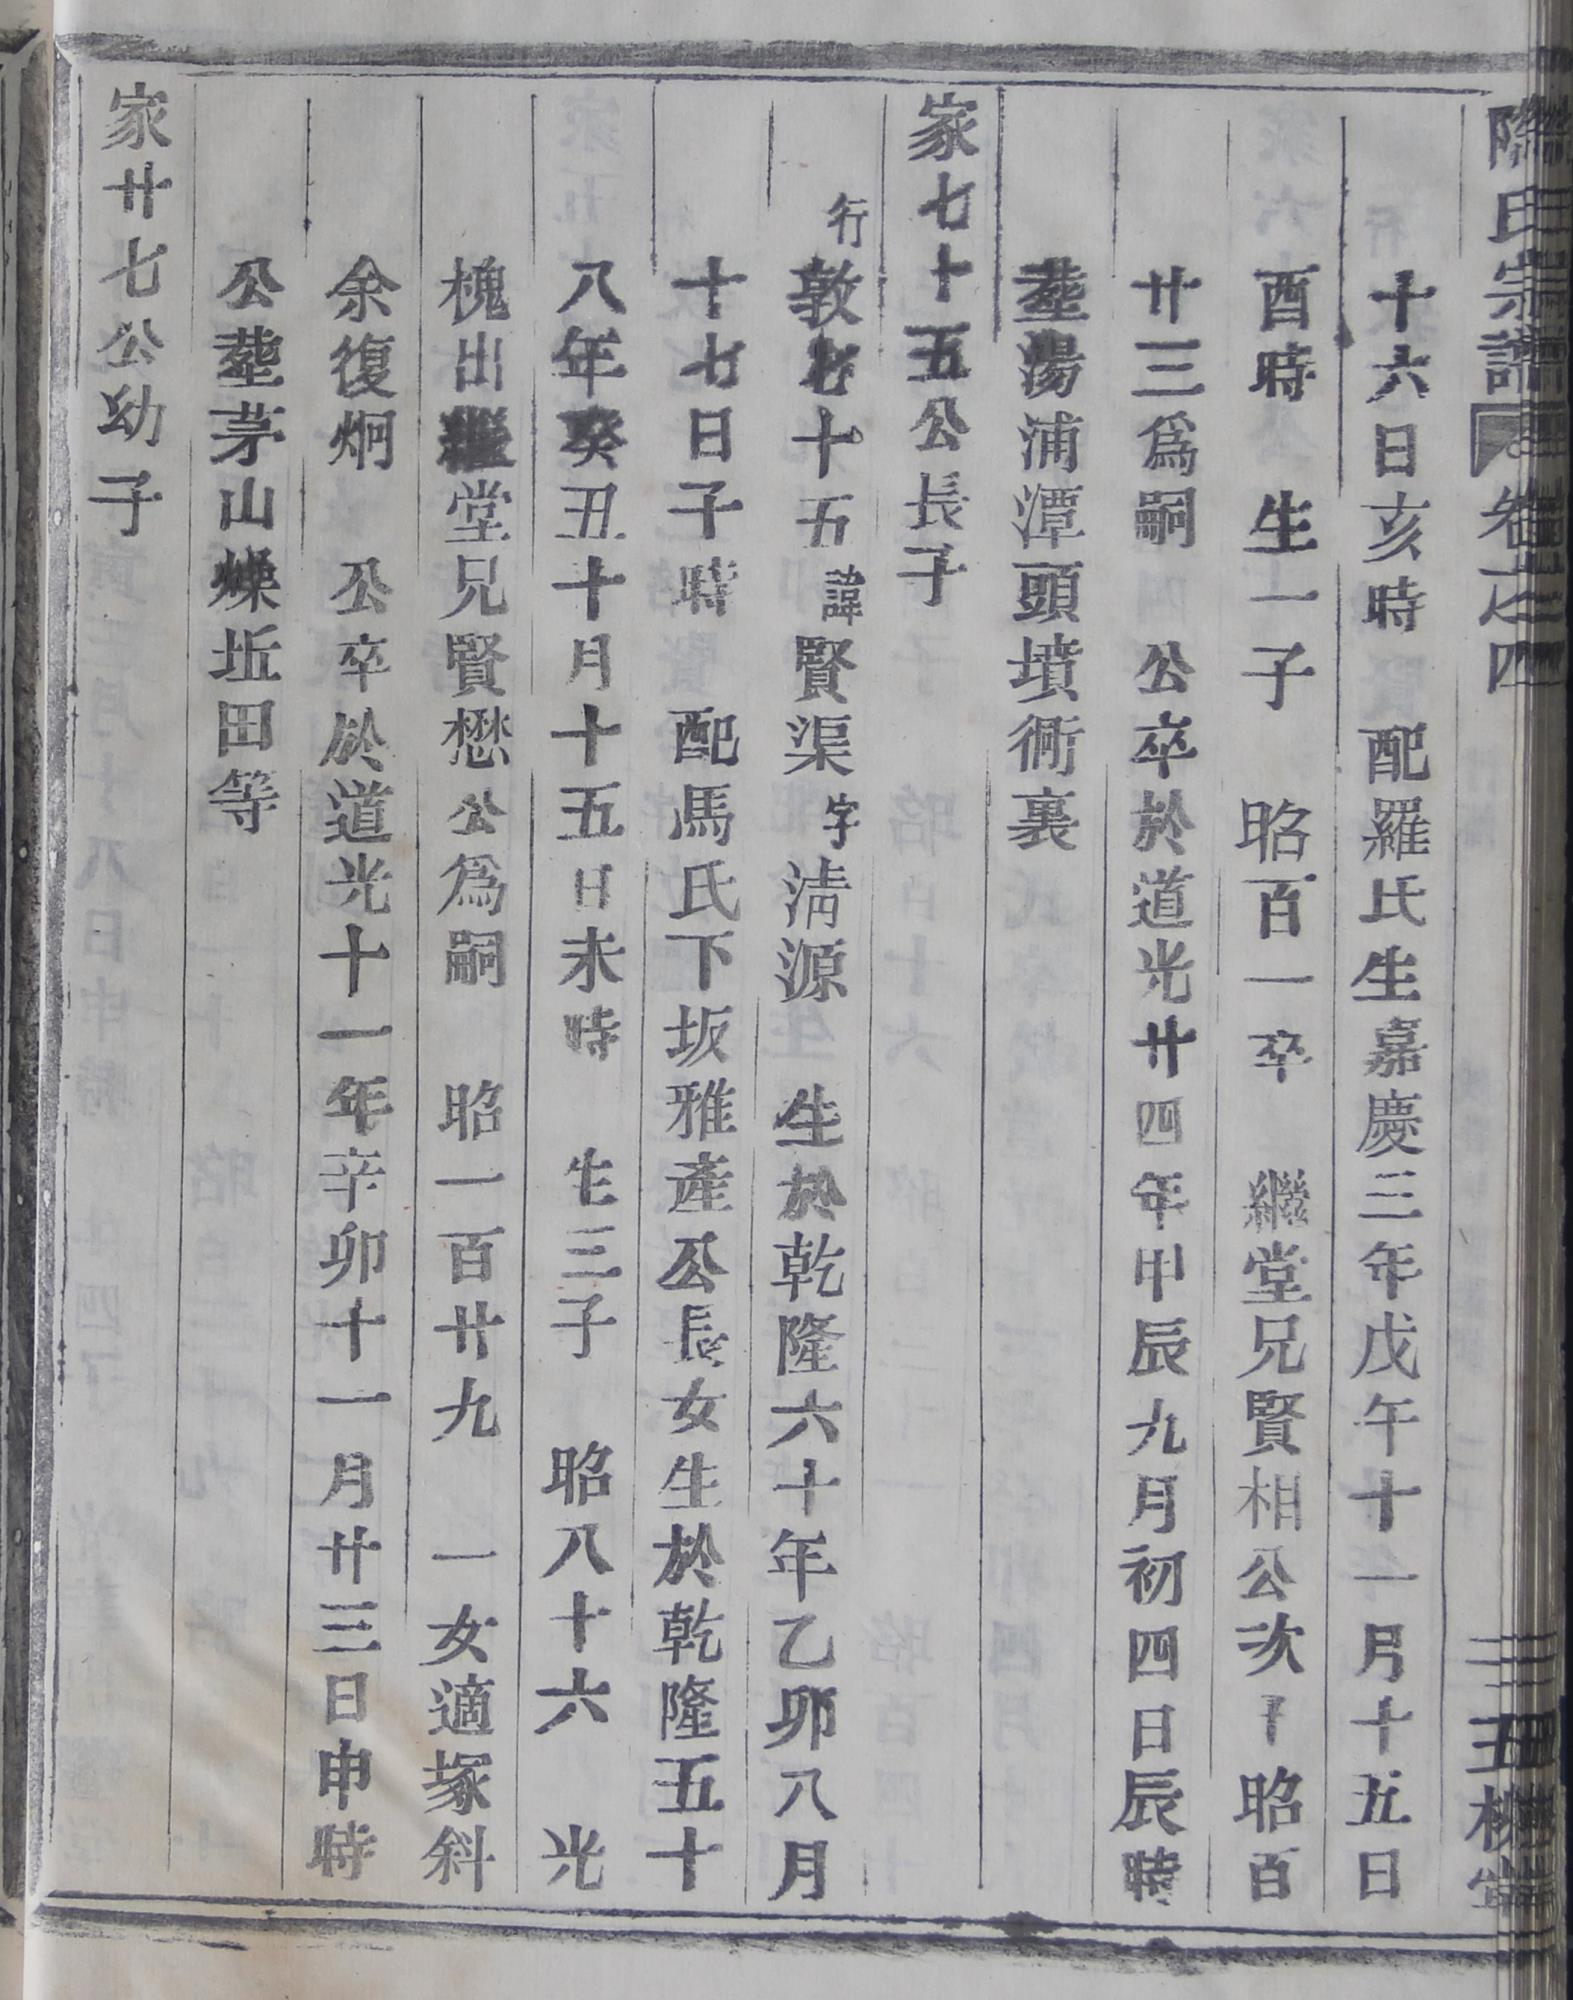 陳氏宗譜 卷之四 三 五桂堂
十六日亥時 配羅氏生嘉慶三年戊午十一月十五日
酉時 生一子 昭百一卒 繼堂兄賢相公次子昭百
廿三爲嗣 公卒於道光廿四年甲辰九月初四日辰時
塟湯浦潭頭墳衕裏
家七十五公長子
行敦七十五諱賢渠字淸源 生於乾隆六十年乙卯八月
十七日子時 配馬氏下坂雅產公長女生於乾隆五十
八年癸丑十月十五日未時 生三子 昭八十六 光
槐出繼堂兄賢懋公爲嗣 昭一百廿九 一女適塚斜
余復炯 公卒於道光十一年辛卯十一月廿三日申時
公塟茅山燥坵田等
家廿七公幼子